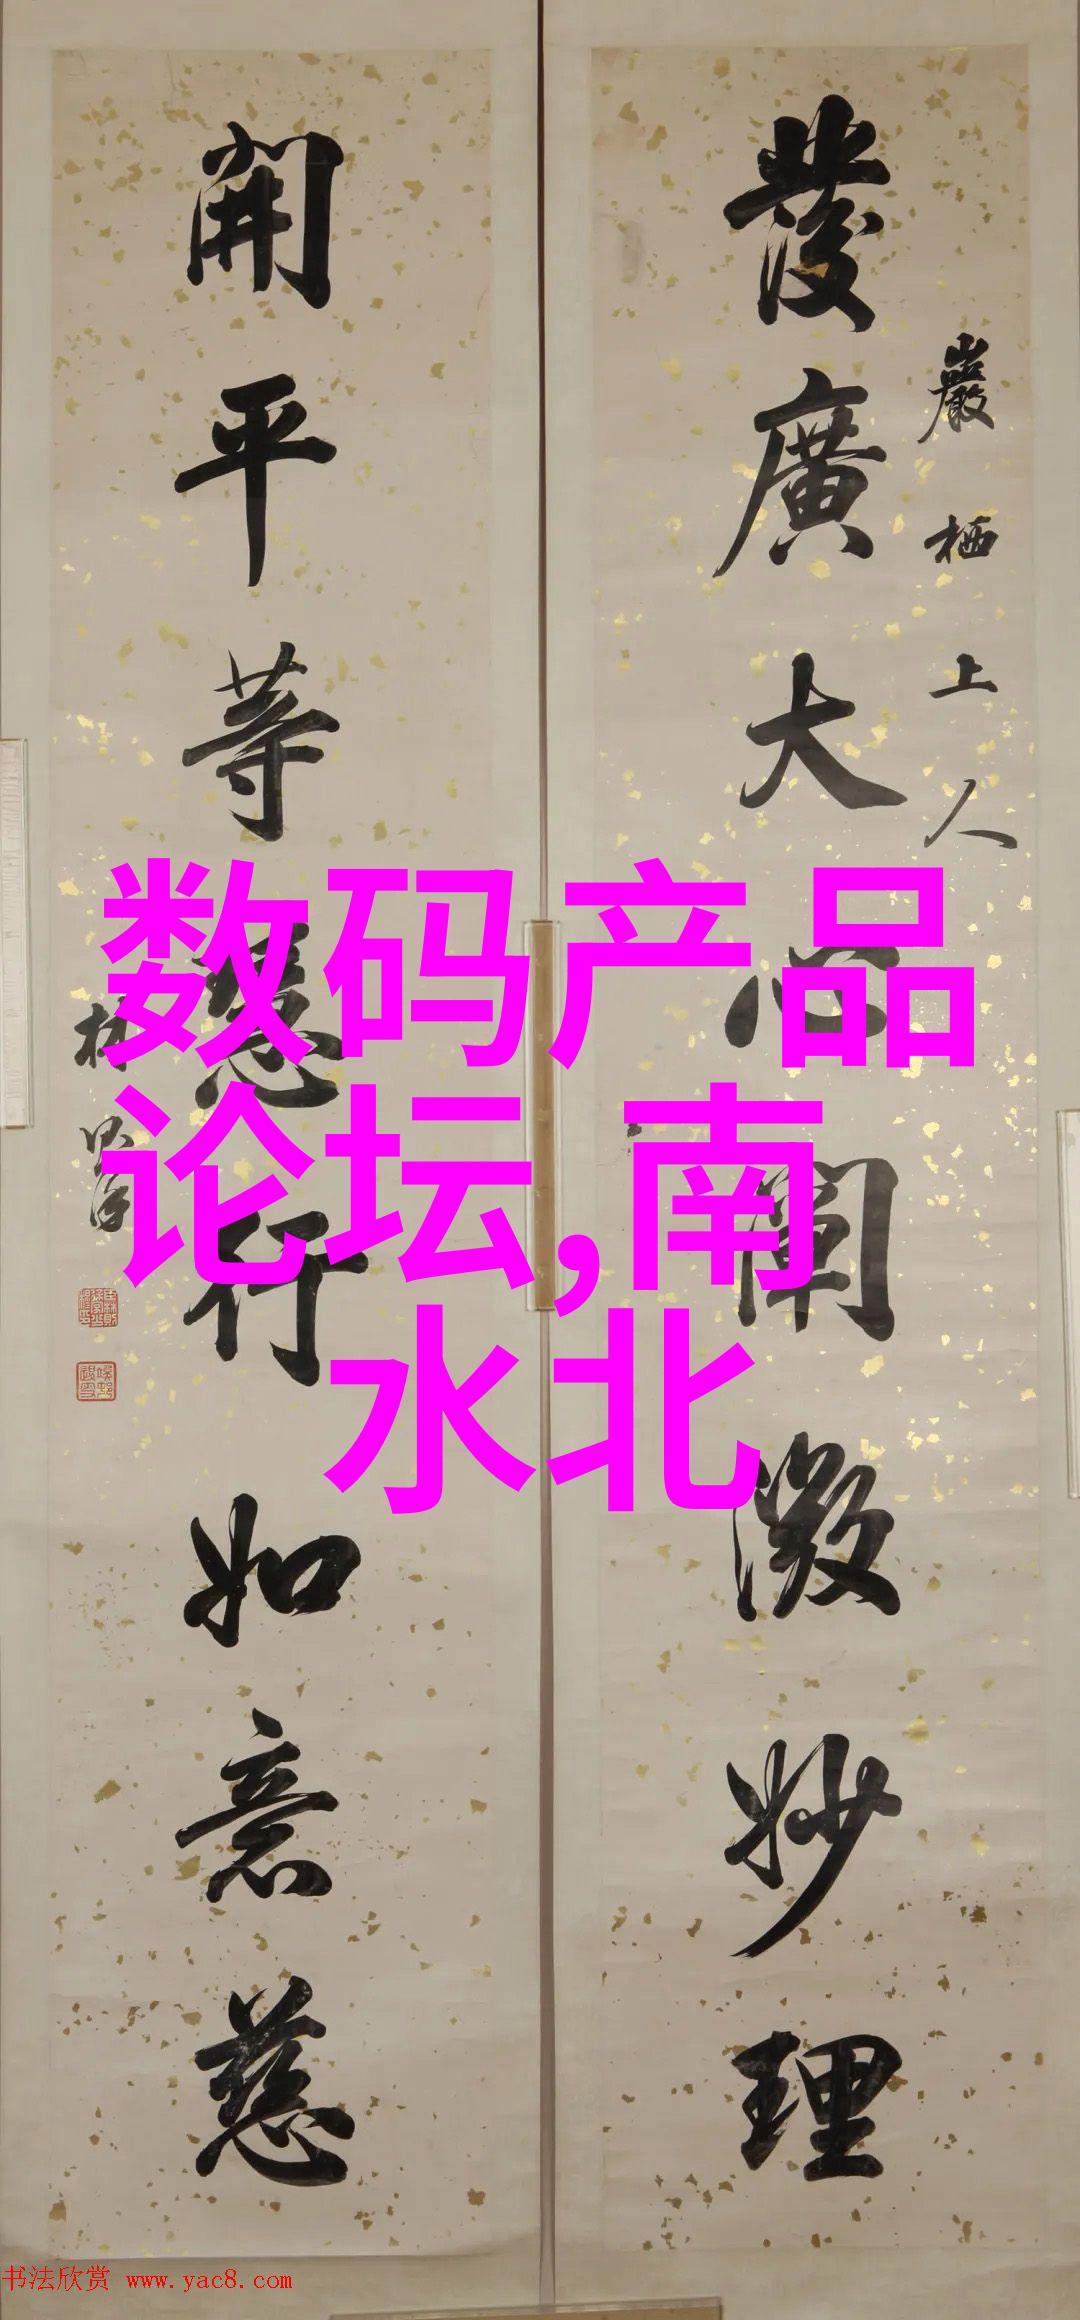 巖栖上人
發廣大心闡微妙理
開平等慧行如意慈
林則徐
数码产品
论坛,南
水北
书法欣赏 www.yac8.com